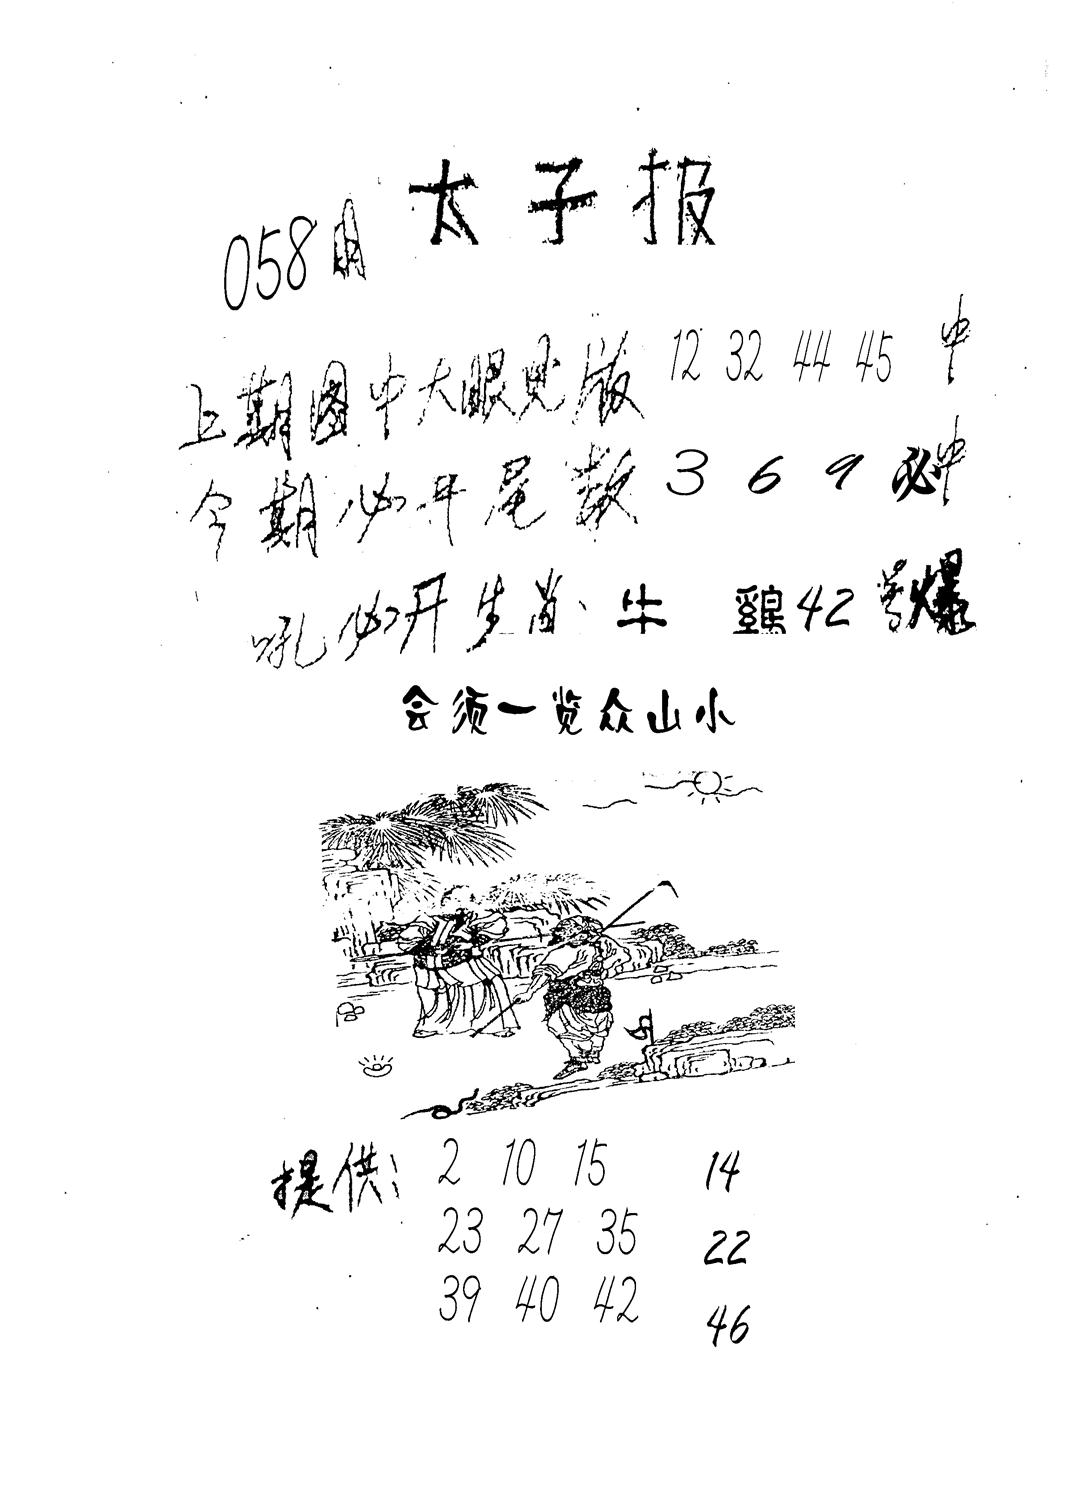 太子报
058期
上期图中大眼见版 12 32 44 45 中
今期必开尾数 3 6 9 必中
吼必开生肖:牛 鷄 42 号爆
会须一览众山小
提供: 2 10 15 14
23 27 35 22
39 40 42 46